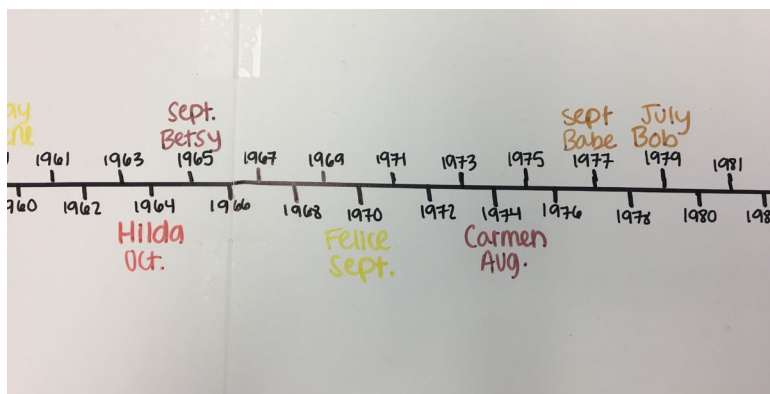 sept.
Betsy
sept
Babe
July
Bob
1961
1963
1965
1967
1969
1971
1973
1975
1977
1979
1981
1962
1964
1966
1968
1970
1972
1974
1976
1978
1980
Hilda
Oct.
Felice
Sept.
Carmen
Aug.